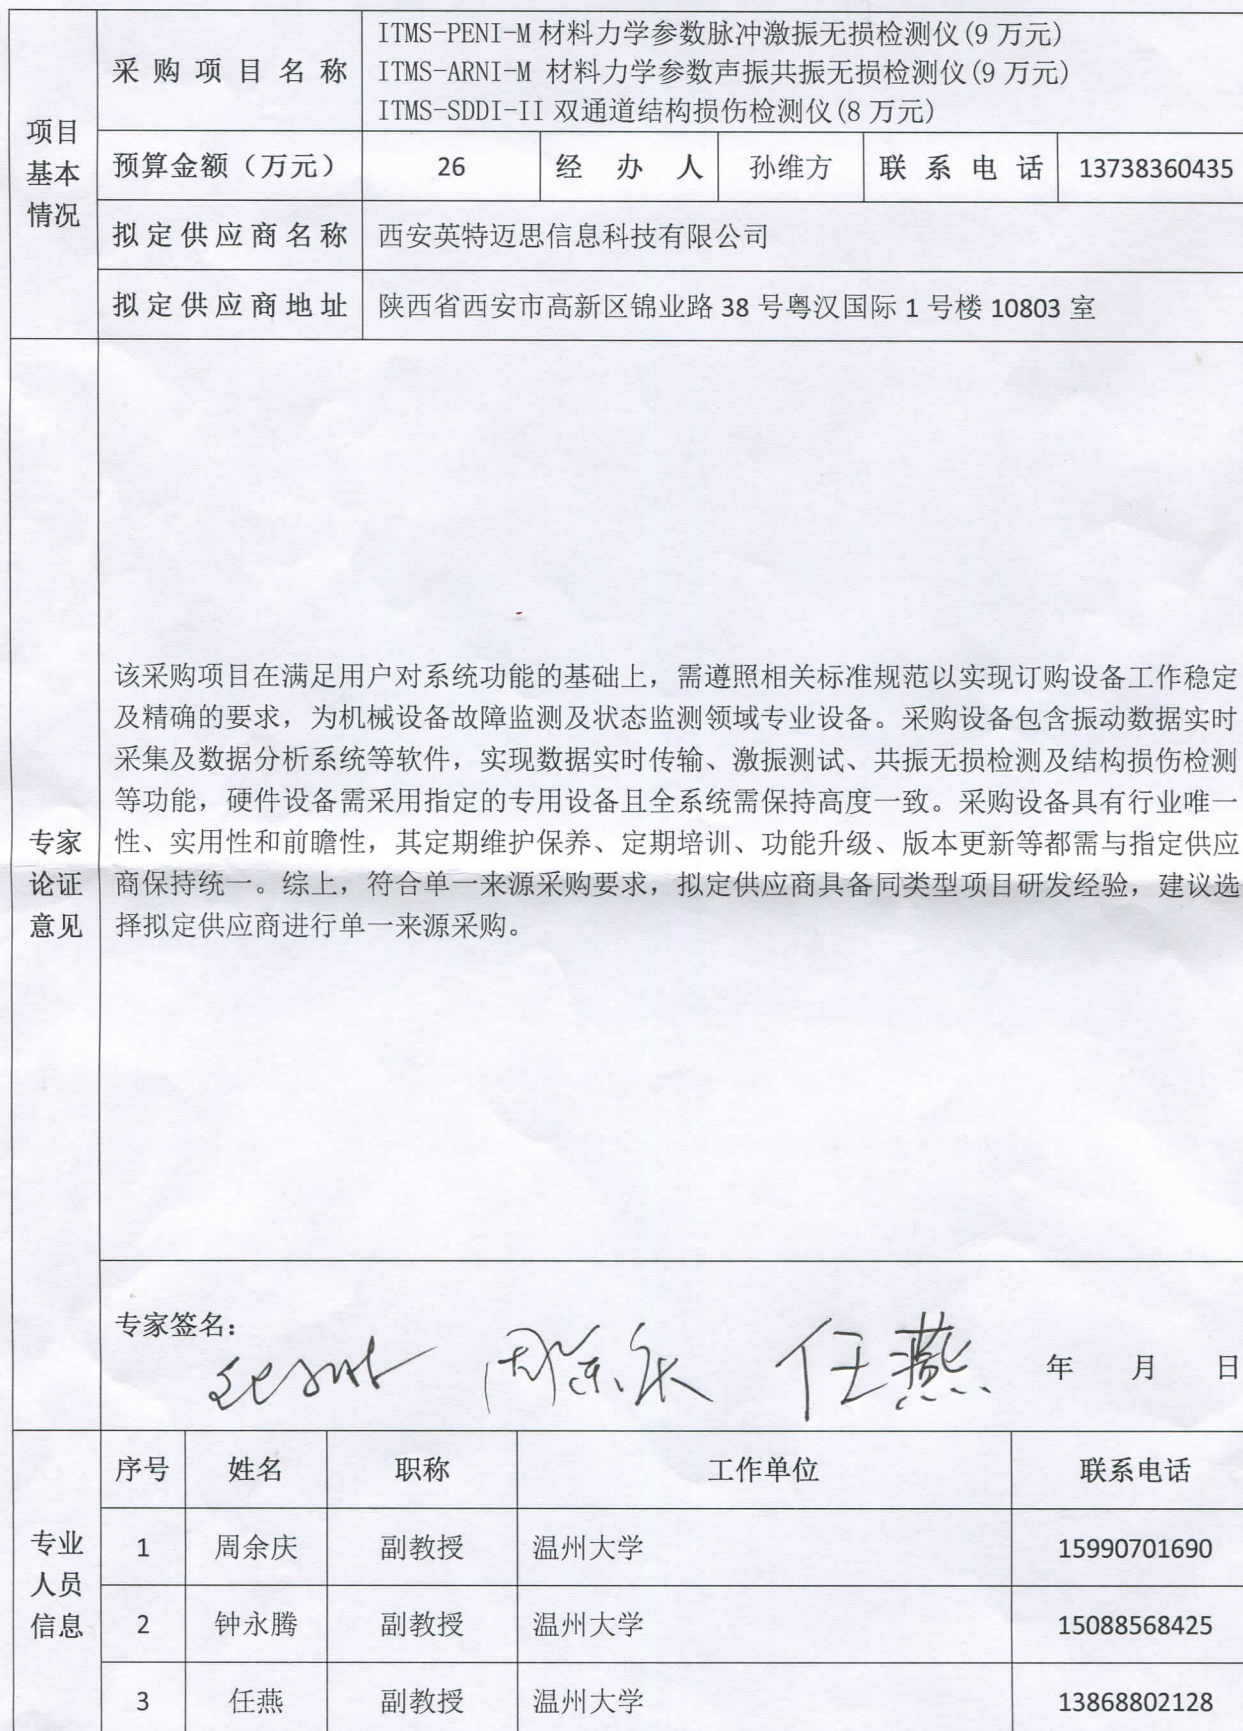 项目基本情况
采购项目名称
ITMS-PENI-M 材料力学参数脉冲激振无损检测仪(9 万元)
ITMS-ARNI-M 材料力学参数声振共振无损检测仪(9 万元)
ITMS-SDDI-II 双通道结构损伤检测仪(8 万元)
预算金额（万元） 26 经办人 孙维方 联系电话 13738360435
拟定供应商名称 西安英特迈思信息科技有限公司
拟定供应商地址 陕西省西安市高新区锦业路 38 号粤汉国际 1 号楼 10803 室
专家论证意见
该采购项目在满足用户对系统功能的基础上，需遵照相关标准规范以实现订购设备工作稳定
及精确的要求，为机械设备故障监测及状态监测领域专业设备。采购设备包含振动数据实时
采集及数据分析系统等软件，实现数据实时传输、激振测试、共振无损检测及结构损伤检测
等功能，硬件设备需采用指定的专用设备且全系统需保持高度一致。采购设备具有行业唯一
性、实用性和前瞻性，其定期维护保养、定期培训、功能升级、版本更新等都需与指定供应
商保持统一。综上，符合单一来源采购要求，拟定供应商具备同类型项目研发经验，建议选
择拟定供应商进行单一来源采购。
专家签名：
周余庆 任燕 年 月 日
专业人员信息
序号 姓名 职称 工作单位 联系电话
1 周余庆 副教授 温州大学 15990701690
2 钟永腾 副教授 温州大学 15088568425
3 任燕 副教授 温州大学 13868802128